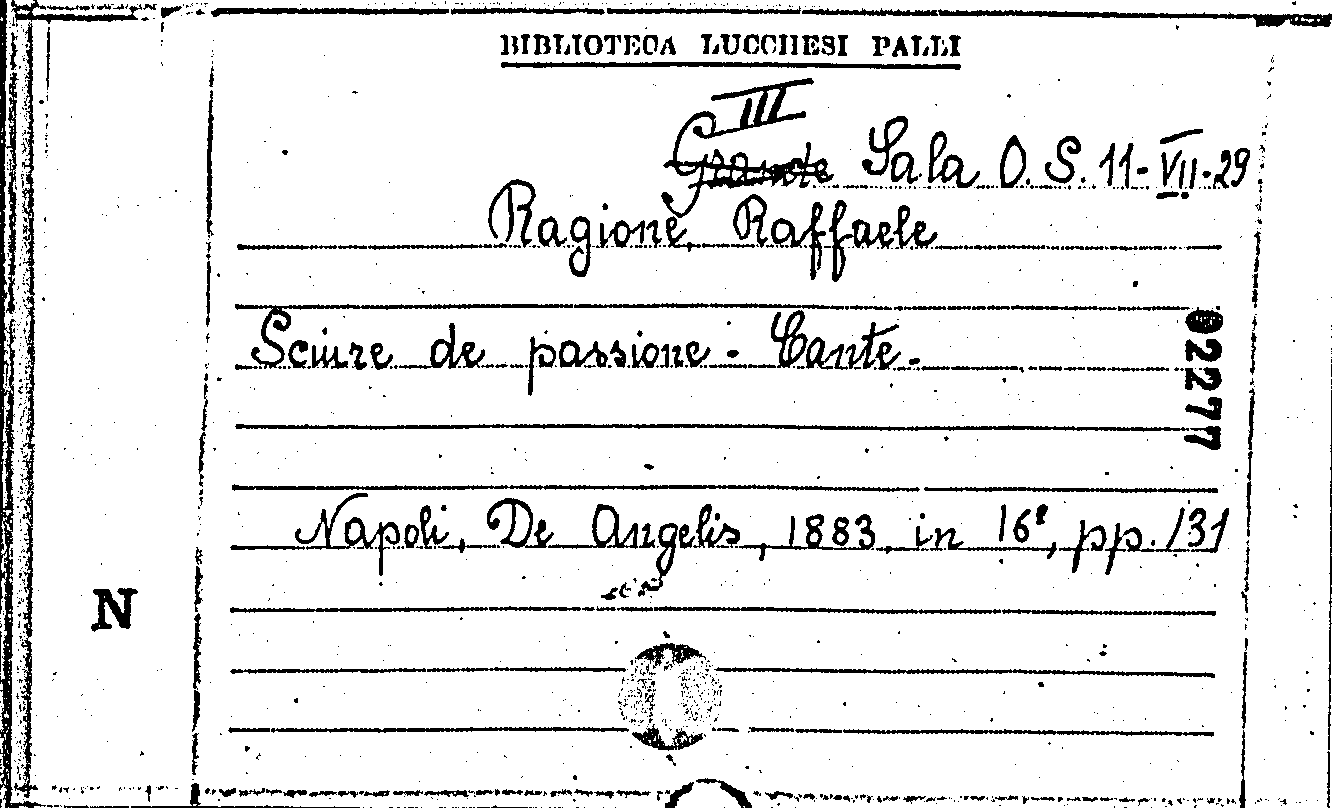 BIBLIOTECA LUCCHESI PALLI
III
Grande Sala O. S. 11-VII-29
Ragione, Raffaele
Sciure de passione - Cante.
02277
Napoli, De Angelis, 1883, in 16°, pp. 131
N